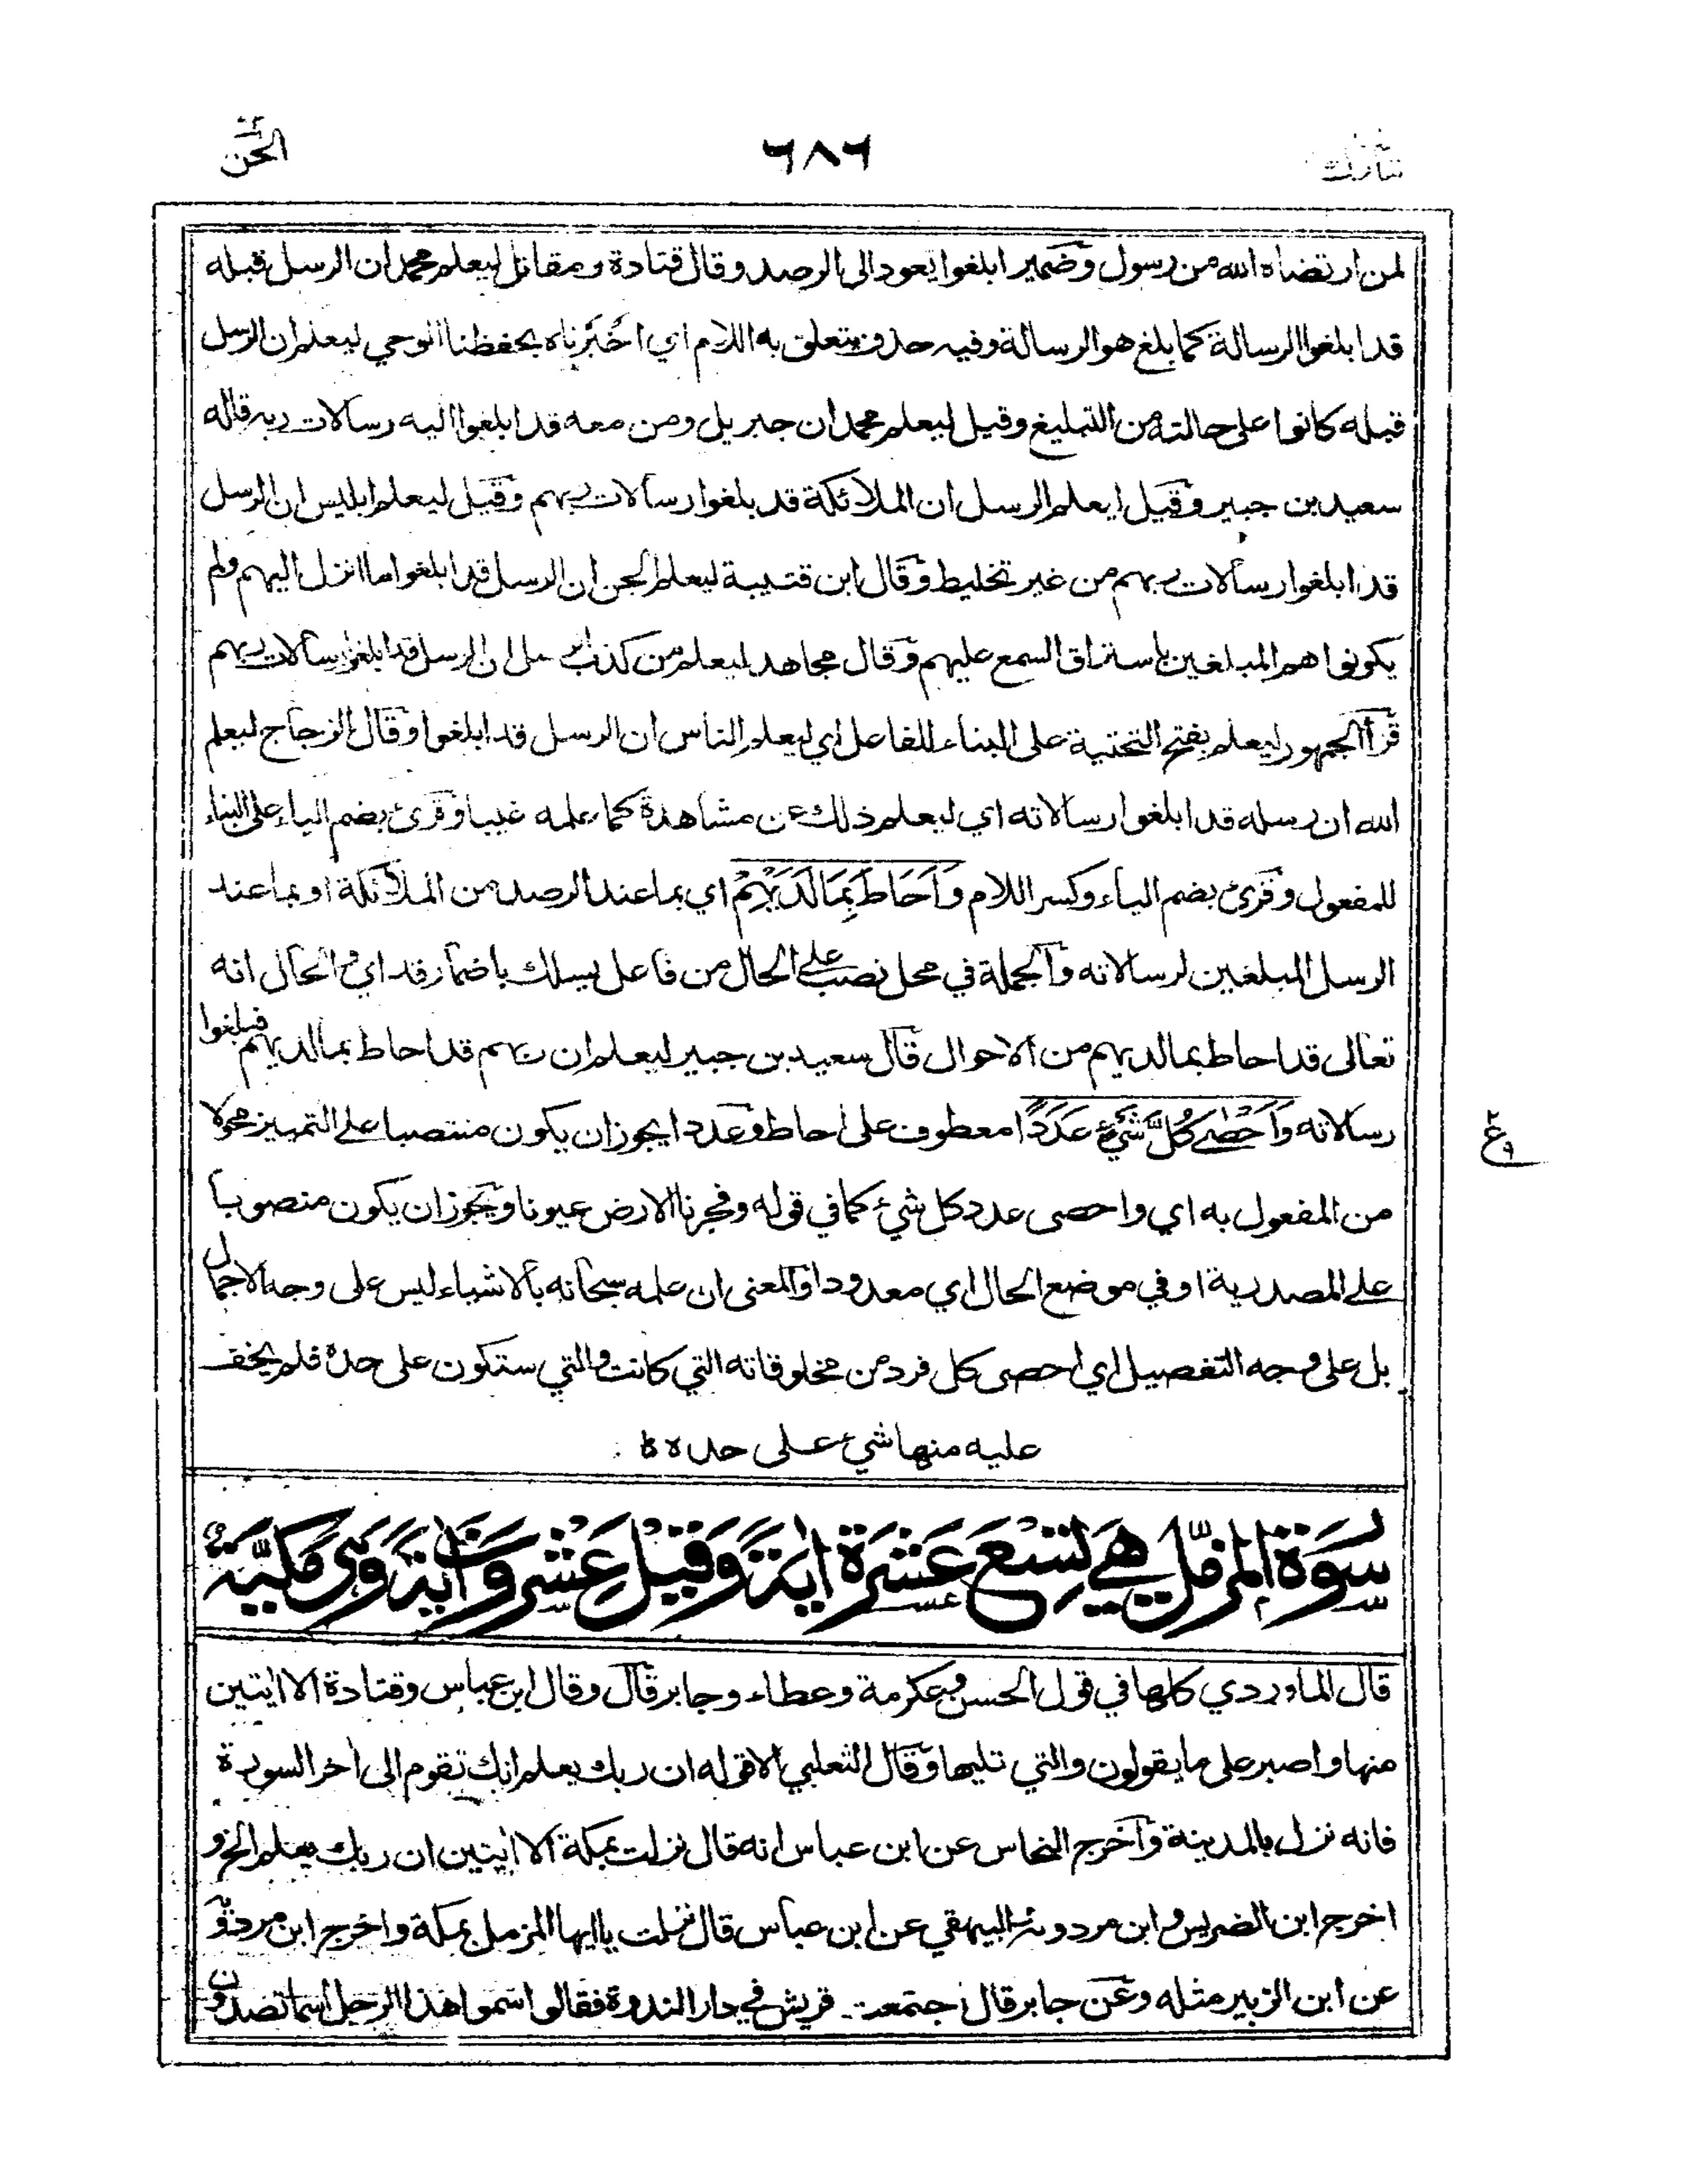 تبارك
٦٨٦
الجن
لمن ارتضاه الله من رسول وضمير ابلغوا يعود الى الرصد وقال قتادة ومقاتل ليعلم محمد ان الرسل قبله
قد ابلغوا الرسالة كما بلغ هو الرسالة وفيه حذف يتعلق به اللام اي اخبرناه بحفظنا الوحي ليعلم ان الرسل
قبله كانوا على حالته من التبليغ وقيل ليعلم محمد ان جبريل ومن معه قد ابلغوا اليه رسالات ربه قاله
سعيد بن جبير وقيل ليعلم الرسل ان الملائكة قد بلغوا رسالات ربهم وقيل ليعلم ابليس ان الرسل
قد ابلغوا رسالات ربهم من غير تخليط وقال ابن قتيبة ليعلم الجن ان الرسل قد ابلغوا ما انزل اليهم ولم
يكونوا هم المبلغين باستراق السمع عليهم وقال مجاهد ليعلم من كذب الرسل ان الرسل قد ابلغوا رسالات ربهم
قرأ الجمهور ليعلم بفتح التحتية على البناء للفاعل اي ليعلم الناس ان الرسل قد ابلغوا وقال الزجاج ليعلم
الله ان رسله قد ابلغوا رسالاته اي ليعلم ذلك عن مشاهدة كما علمه غيبا وقرئ بضم الياء على البناء
للمفعول وقرئ بضم الياء وكسر اللام وَاَحَاطَ بِمَا لَدَيْهِمْ اي بما عند الرصد من الملائكة او بما عند
الرسل المبلغين لرسالاته والجملة في محل نصب على الحال من فاعل يسلك باضمار قد اي والحال انه
تعالى قد احاط بما لديهم من الاحوال قال سعيد بن جبير ليعلم ان ربهم قد احاط بما لديهم فبلغوا
رسالاته وَاَحْصٰى كُلَّ شَيْءٍ عَدَدًا معطوف على احاط وعددا يجوز ان يكون منتصبا على التمييز محولا
من المفعول به اي واحصى عدد كل شيء كما في قوله وفجرنا الارض عيونا ويجوز ان يكون منصوبا
على المصدرية او في موضع الحال اي معدودا والمعنى ان علمه سبحانه بالاشياء ليس على وجه الاجمال
بل على وجه التفصيل اي احصى كل فرد من مخلوقاته التي كانت والتي ستكون على حدة فلم يخف
عليه منها شيء على حده
ع ٢ ٩
سُوْرَة المزمل هي تِسْعَ عَشَرَة ايَة وَقِيْلَ عِشْرون ايَة وهي مكيّة
قال الماوردي كلها في قول الحسن وعكرمة وعطاء وجابر قال وقال ابن عباس وقتادة الا ايتين
منها واصبر على ما يقولون والتي تليها وقال الثعلبي الا قوله ان ربك يعلم انك تقوم الى اخر السورة
فانه نزل بالمدينة واخرج النحاس عن ابن عباس انه قال نزلت بمكة الا ايتين ان ربك يعلم الخ و
اخرج ابن الضريس وابن مردويه والبيهقي عن ابن عباس قال نزلت يا ايها المزمل بمكة واخرج ابن مردويه
عن ابن الزبير مثله وعن جابر قال اجتمعت قريش في دار الندوة فقالوا اسموا هذا الرجل اسما تصدون